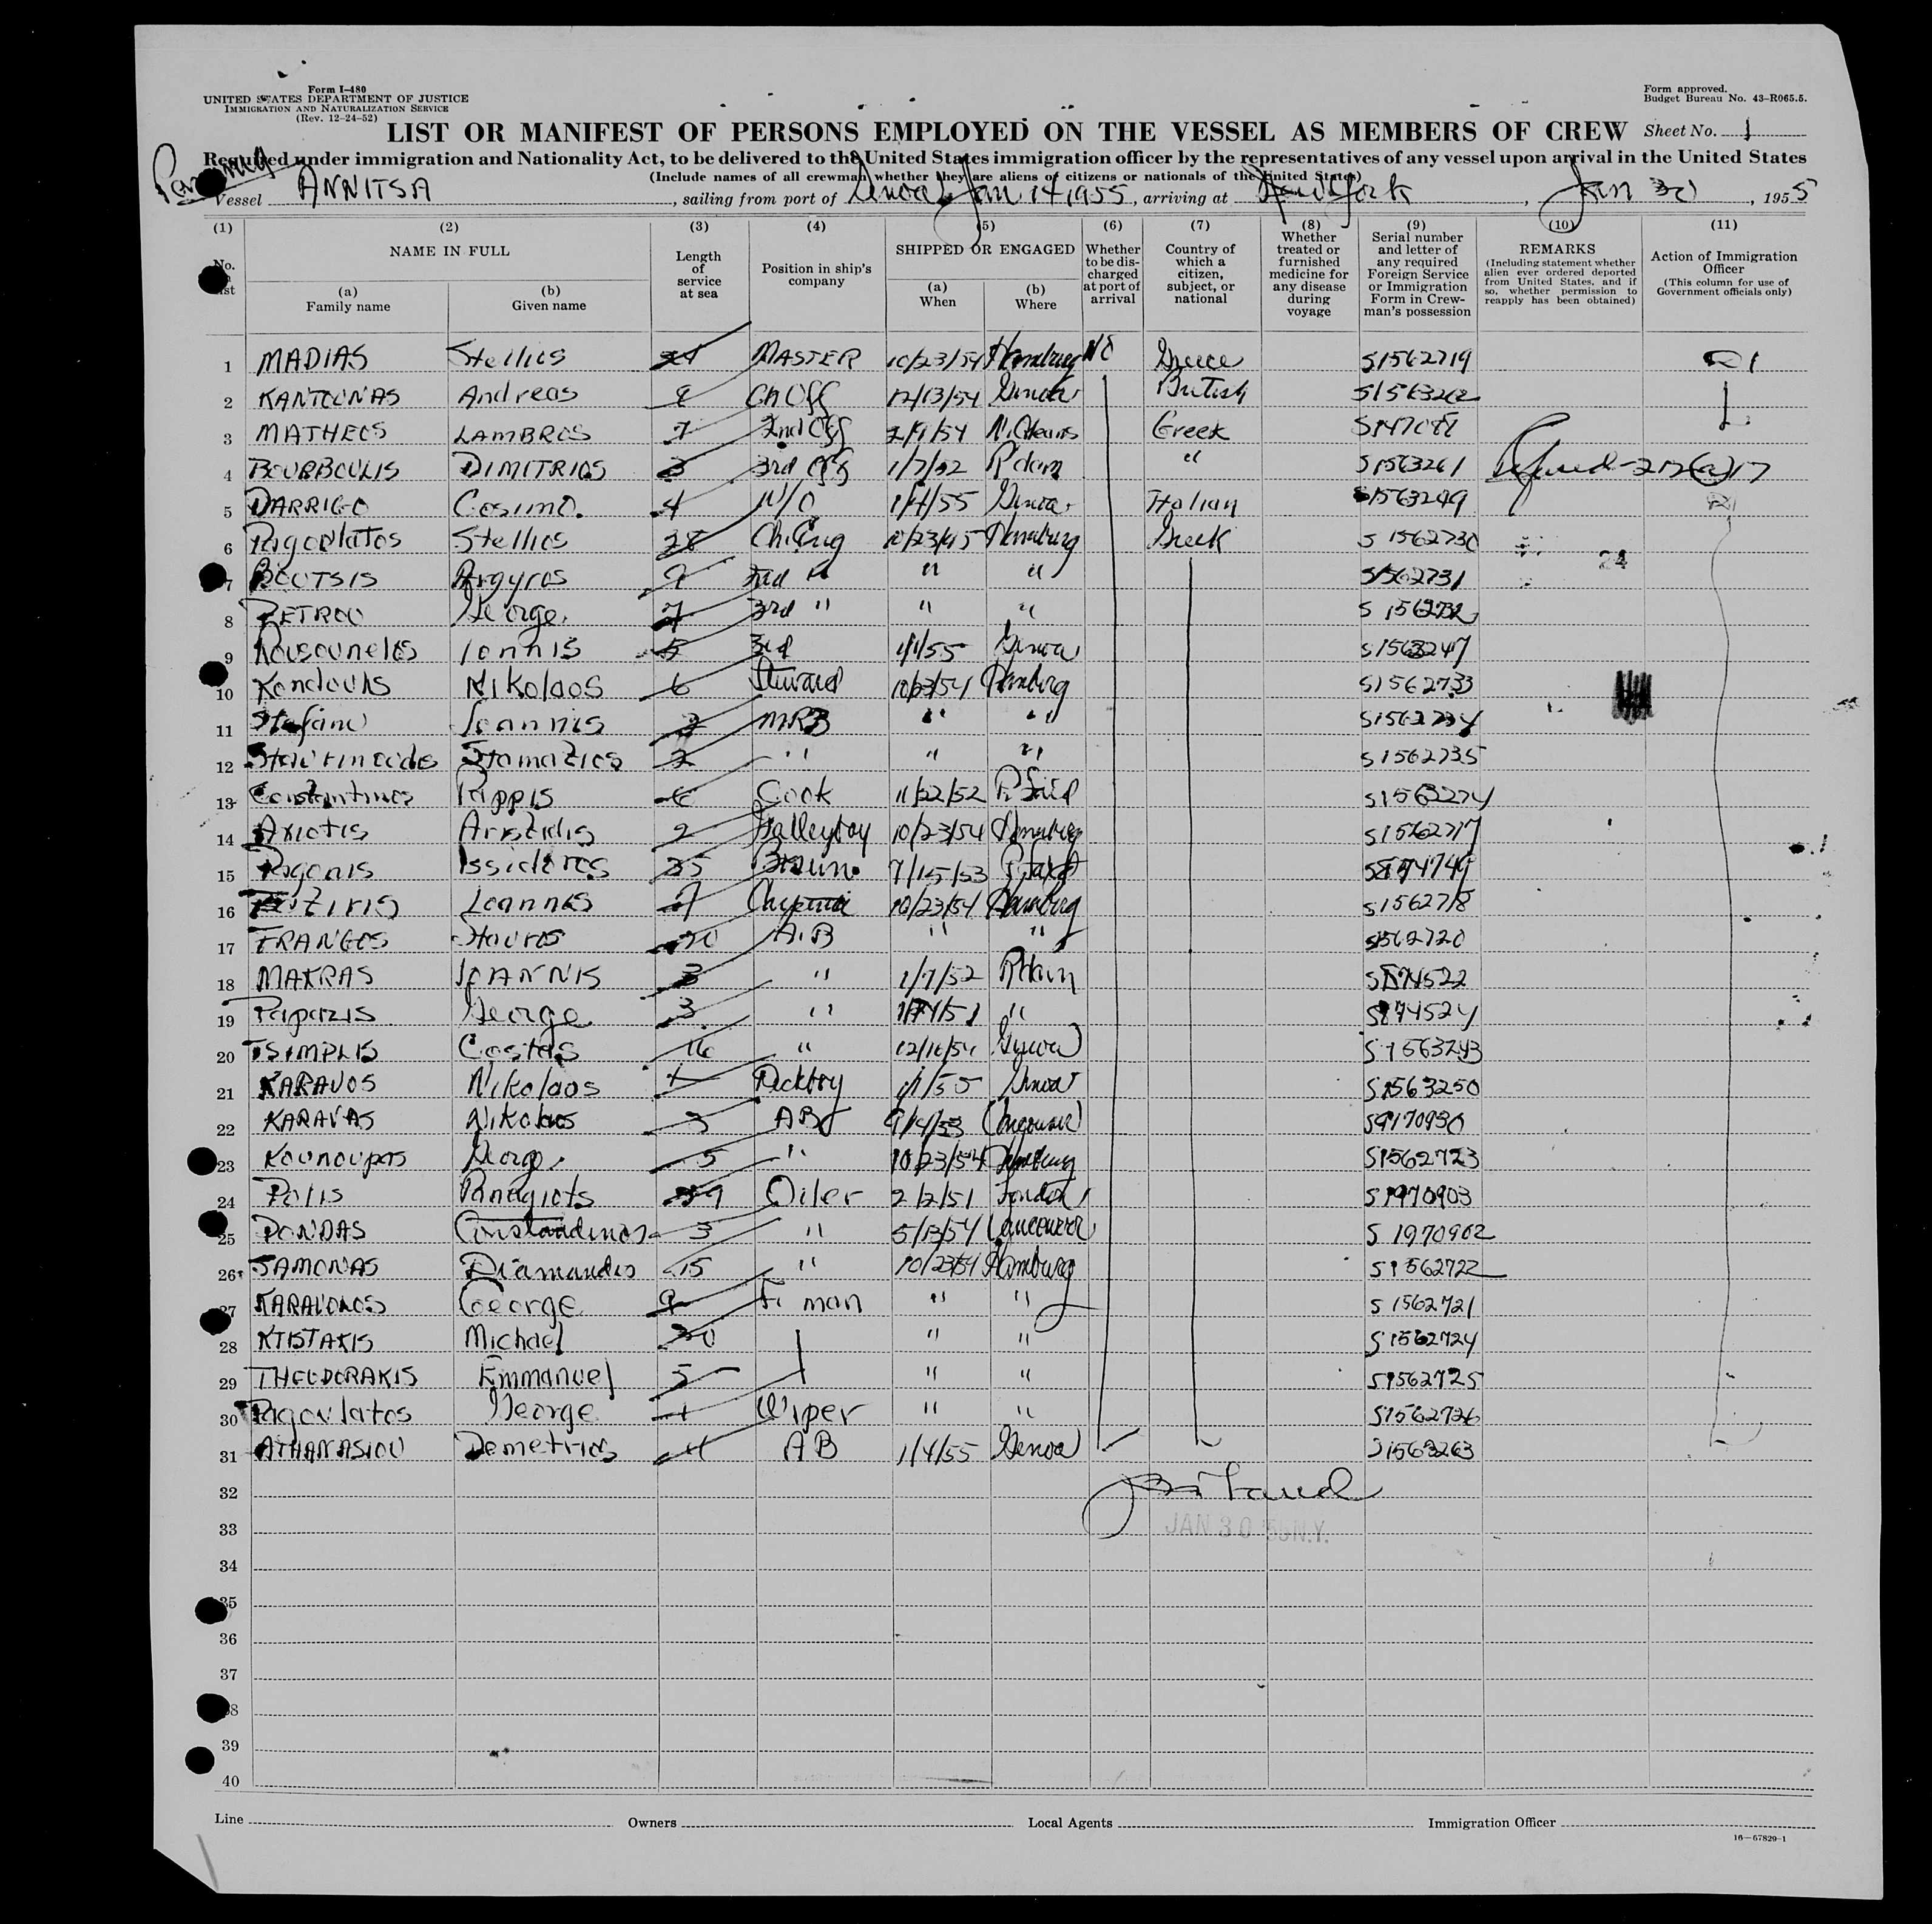 Form I-480
UNITED STATES DEPARTMENT OF JUSTICE
IMMIGRATION AND NATURALIZATION SERVICE
(Rev. 12-24-52)
Form approved.
Budget Bureau No. 43-R065.5.
LIST OR MANIFEST OF PERSONS EMPLOYED ON THE VESSEL AS MEMBERS OF CREW Sheet No. 1
Required under immigration and Nationality Act, to be delivered to the United States immigration officer by the representatives of any vessel upon arrival in the United States
(Include names of all crewman whether they are aliens or citizens or nationals of the United States)
Vessel ANNITSA, sailing from port of Genoa Jan 14 1955, arriving at New York, Jan 30, 1955
(1) (2) (3) (4) (5) (6) (7) (8) (9) (10) (11)
No. list
NAME IN FULL
(a) Family name
(b) Given name
Length of service at sea
Position in ship's company
SHIPPED OR ENGAGED
(a) When
(b) Where
Whether to be discharged at port of arrival
Country of which a citizen, subject, or national
Whether treated or furnished medicine for any disease during voyage
Serial number and letter of any required Foreign Service or Immigration Form in Crewman's possession
REMARKS
(Including statement whether alien ever ordered deported from United States, and if so, whether permission to reapply has been obtained)
Action of Immigration Officer
(This column for use of Government officials only)
1 MADIAS Stellios MASTER 10/23/54 Hamburg NO Greece S1562719
2 KANTOUNAS Andreas Ch Off 12/13/54 Genoa British S1563262
3 MATHEOS LAMBROS 7 2nd Off 2/9/54 N. Orleans Greek
4 BOURBOULIS DIMITRIOS 3 3rd Off 1/7/52 Rdam " S1563261
5 DARRIGO Cosimo. 4 1/4/55 Genoa Italian S1563249
6 Pagoulatos Stellios 28 Ch. Eng Hamburg Greek S1562730
7 BOUTSIS Argyros " " S1562731
8 PETROU George 7 3rd " " " S1562732
9 Ioannis 5 3rd 1/1/55 Genoa S1563247
10 Nikolaos 6 Steward 10/23/54 Hamburg S1562733
11 Ioannis " " S1562734
12 Stamatios 2 " " " S1562735
13 Constantinos Pappis 6 Cook 11/22/52 P. Said S1563274
14 Axiotis Aristidis 2 Galleyboy 10/23/54 Hamburg S1562717
15 Pagonis Issidoros 35 7/15/53
16 Ioannis 10/23/54 Hamburg S1562718
17 FRANGOS Stavros 20 A.B " " S1562720
18 MAKRAS IOANNIS 3 " 1/7/52 Rdam
19 Paparis George 3 " "
20 TSIMPLIS Costas 16 " 12/16/54 Genoa S1563243
21 KARAVOS Nikolaos Deckboy 1/1/55 Genoa S1563250
22 KARAVAS Nikolaos 3 AB Vancouver
23 Kounoupas George 5 " 10/23/54 Hamburg S1562723
24 Polis Panagiots Oiler 2/2/51 London S1970903
25 PONDAS Constandinos 3 " 5/13/54 Vancouver S 1970902
26 SAMONAS Diamandis 15 " 10/23/54 Hamburg S1562722
27 George 9 Fi man " " S 1562721
28 KTISTAKIS Michael " " S1562724
29 THEODORAKIS Emmanuel 5 " " S1562725
30 Pagoulatos George 1 Wiper " " S1562726
31 ATHANASIOU Demetrios 4 AB 1/4/55 Genoa S1563263
32
JAN 30 N.Y.
33
34
35
36
37
38
39
40
Line Owners Local Agents Immigration Officer
16—67829-1